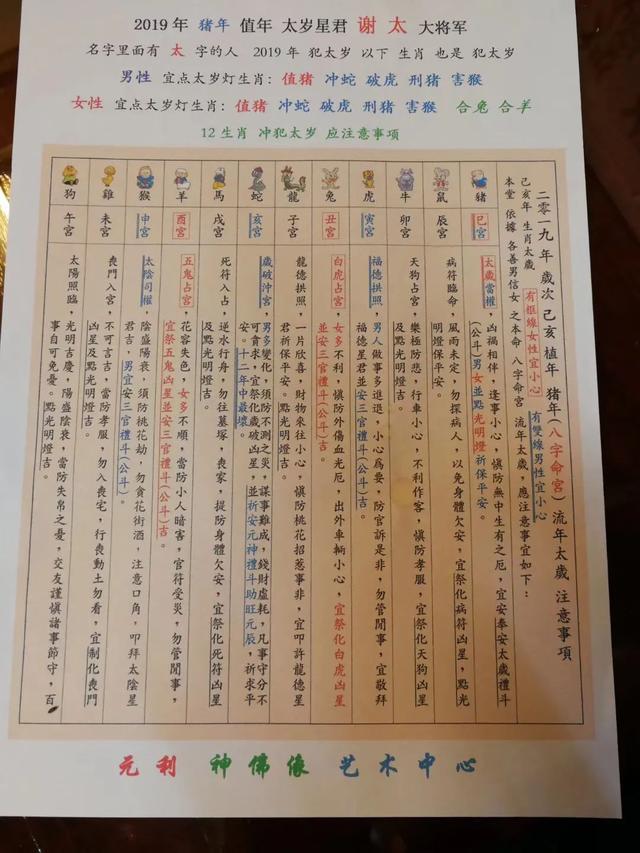 2019年 猪年 值年 太岁星君 谢太 大将军
名字里面有 太 字的人 2019 年 犯太岁 以下 生肖 也是 犯太岁
男性 宜点太岁灯生肖: 值猪 冲蛇 破虎 刑猪 害猴
女性 宜点太岁灯生肖: 值猪 冲蛇 破虎 刑猪 害猴 合兔 合羊
12 生肖 冲犯太岁 应注意事项
二零一九年歲次 己亥 植年 猪年(八字命宮)流年太歲 注意事項
己亥年 生肖太歲 有框線女性宜小心 有雙線男性宜小心
本堂 依據 各善男信女 之本命 八字命宮 流年太歲,應注意事宜如下:
猪
巳宮
太歲當權,凶禍相伴,逢事小心,慎防無中生有之厄,宜安奉安太歲禮斗
(公斗)男女並點光明燈祈保平安。
鼠
辰宮
病符臨命,風雨未定,勿探病人,以免身體欠安,宜祭化病符凶星,點光
明燈保平安。
牛
卯宮
天狗占宮,樂極防悲,行車小心,不利作客,慎防孝服,宜祭化天狗凶星
及點光明燈吉。
虎
寅宮
福德拱照,男人做事多進退,小心爲要,防官訴是非,勿管閒事,宜敬拜
福德星君並安三官禮斗(公斗)吉。
兔
丑宮
白虎占宮,女多不利,慎防外傷血光厄,出外車輛小心,宜祭化白虎凶星
並安三官禮斗(公斗)吉。
龍
子宮
龍德拱照,一片欣喜,財物來往小心,慎防桃花招惹事非,宜叩許龍德星
君祈保平安。點光明燈吉。
蛇
亥宮
歲破沖宮,男多變化,須防不測之災,謀事難成,錢財虛耗,凡事守分不
可貪求,宜祭化歲破凶星,並祈安元神禮斗助旺元辰,祈求平
安。十二年中最壞。
馬
戌宮
死符入占,逆水行舟,勿往墓塚,喪家,提防身體欠安,宜祭化死符凶星
及點光明燈吉。
羊
酉宮
五鬼占宮,花容失色,女多不順,當防小人暗害,官符受災,勿管閒事,
宜祭五鬼凶星並安三官禮斗(公斗)吉。
猴
申宮
太陰司權,陰盛陽衰,須防桃花劫,勿貪花街酒,注意口角,叩拜太陰星
君吉,男宜安三官禮斗(公斗)。
雞
未宮
喪門入宮,不可言吉,當防孝服,勿入喪宅,行喪動土勿看,宜制化喪門
凶星及點光明燈吉。
狗
午宮
太陽照臨,光明吉慶,陽盛陰衰,當防失帛之憂,交友謹慎諸事節守,百
事自可免憂。點光明燈吉。
元利 神佛像 艺术中心